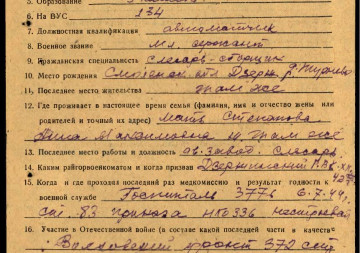 5. Образование
6. На ВУС 134
7. Должностная квалификация автоматчик
8. Военное звание мл. сержант
9. Гражданская специальность слесарь-сборщик
10. Место рождения Смоленск. обл Дзерж. р.
11. Последнее место жительства там же
12. Где проживает в настоящее время семья (фамилия, имя и отчество жены или
родителей и точный их адрес) Мать Степанова
Анна Максимовна и там же
13. Последнее место работы и должность завод. Слесарь
14. Каким райгорвоенкоматом и когда призван Дзержинский РВК
15. Когда и где проходил последний раз медкомиссию и результат годности к
военной службе Госпиталь 3776 6.7.44г.
83 приказа НКО 336 нестроевой
16. Участие в Отечественной войне (в составе какой последней части и в качестве
Волховский фронт 372